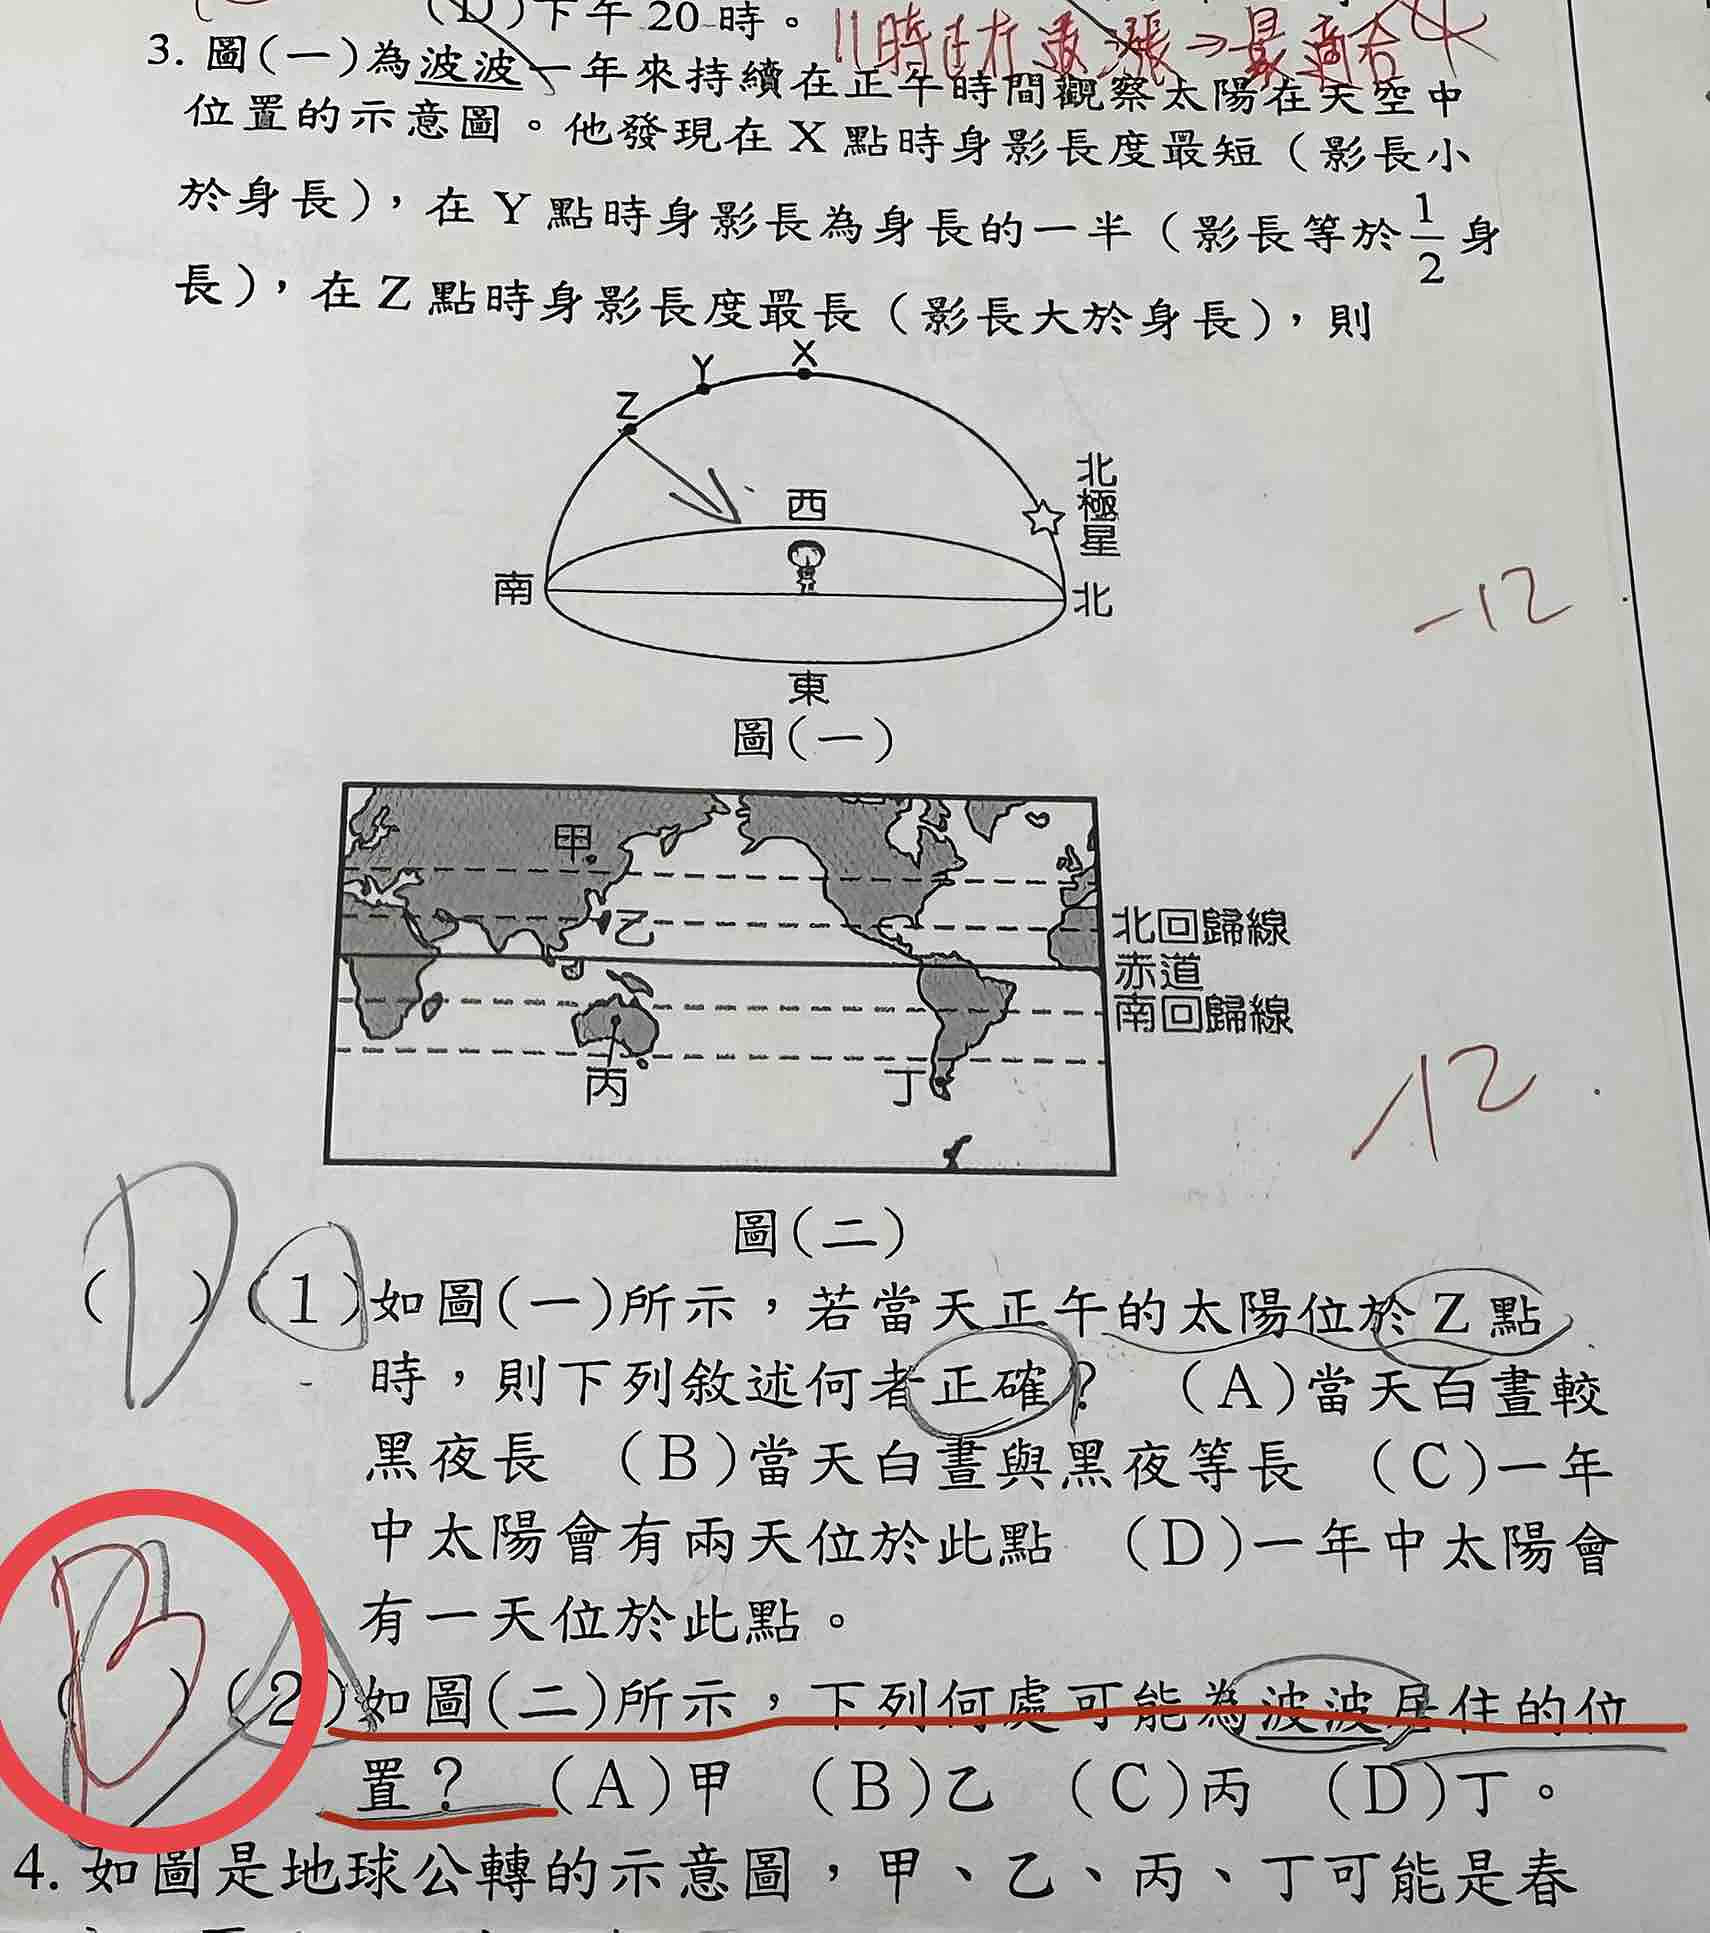 (D)下午20時。
11時正在漲⇒最適合
3. 圖(一)為波波一年來持續在正午時間觀察太陽在天空中
位置的示意圖。他發現在 X 點時身影長度最短(影長小
於身長),在 Y 點時身影長為身長的一半(影長等於1/2身
長),在 Z 點時身影長度最長(影長大於身長),則
X
Y
Z
北極星
西
南
北
東
圖(一)
-12
甲
乙
北回歸線
赤道
南回歸線
丙
丁
-12
圖(二)
D
( ) (1)如圖(一)所示,若當天正午的太陽位於 Z 點
時,則下列敘述何者正確? (A)當天白晝較
黑夜長 (B)當天白晝與黑夜等長 (C)一年
中太陽會有兩天位於此點 (D)一年中太陽會
有一天位於此點。
B
( ) (2)如圖(二)所示,下列何處可能為波波居住的位
置? (A)甲 (B)乙 (C)丙 (D)丁。
4. 如圖是地球公轉的示意圖,甲、乙、丙、丁可能是春